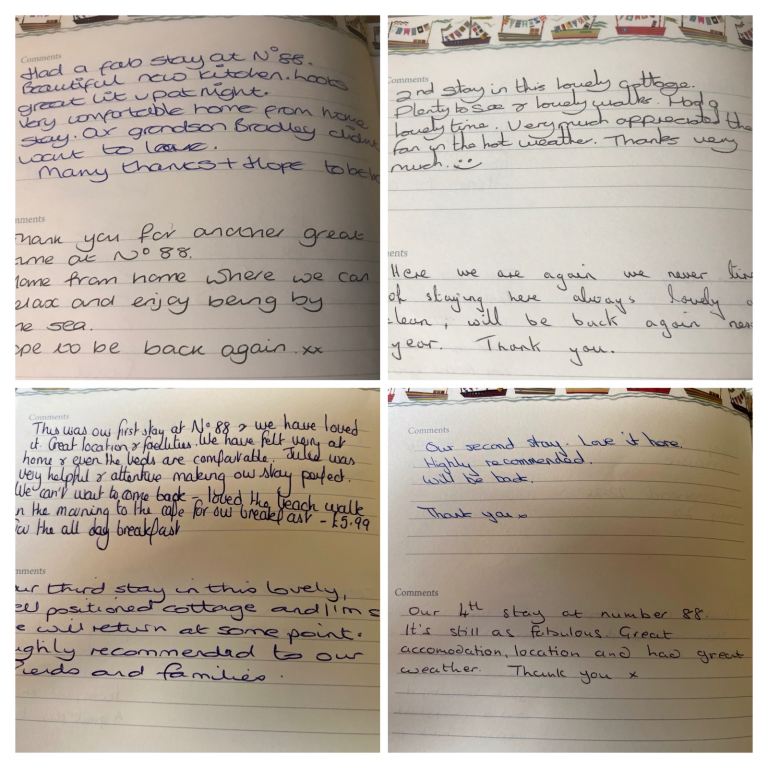 Comments
Had a fab stay at N°88.
Beautiful new kitchen. Looks
great lit up at night.
Very comfortable home from home
stay. Our grandson Bradley didn't
want to leave.
Many thanks + Hope to be
mments
hank you for another great
me at N° 88.
ome from home where we can
elax and enjoy being by
he sea.
ope to be back again. xx
omments
2nd stay in this lovely cottage.
Plenty to see & lovely walks. Had a
lovely time. Very much appreciated the
fan in the hot weather. Thanks very
much.
ents
Here we are again we never tire
of staying here always lovely
clean, will be back again nex
year. Thank you.
Comments
This was our first stay at N° 88 & we have loved
it. Great location & facilities. We have felt very at
home & even the beds are comfortable. Julie was
very helpful & attentive making our stay perfect.
We can't wait to come back - loved the beach walk
in the morning to the cafe for our breakfast - £5.99
for the all day breakfast
mments
ur third stay in this lovely,
ell positioned cottage and I'm s
e will return at some point.
ighly recommended to our
riends and families.
Comments
Our second stay. Love it here.
Highly recommended.
Will be back.
Thank you x
Comments
Our 4th stay at number 88.
It's still as fabulous. Great
accomodation, location and had great
weather. Thank you x